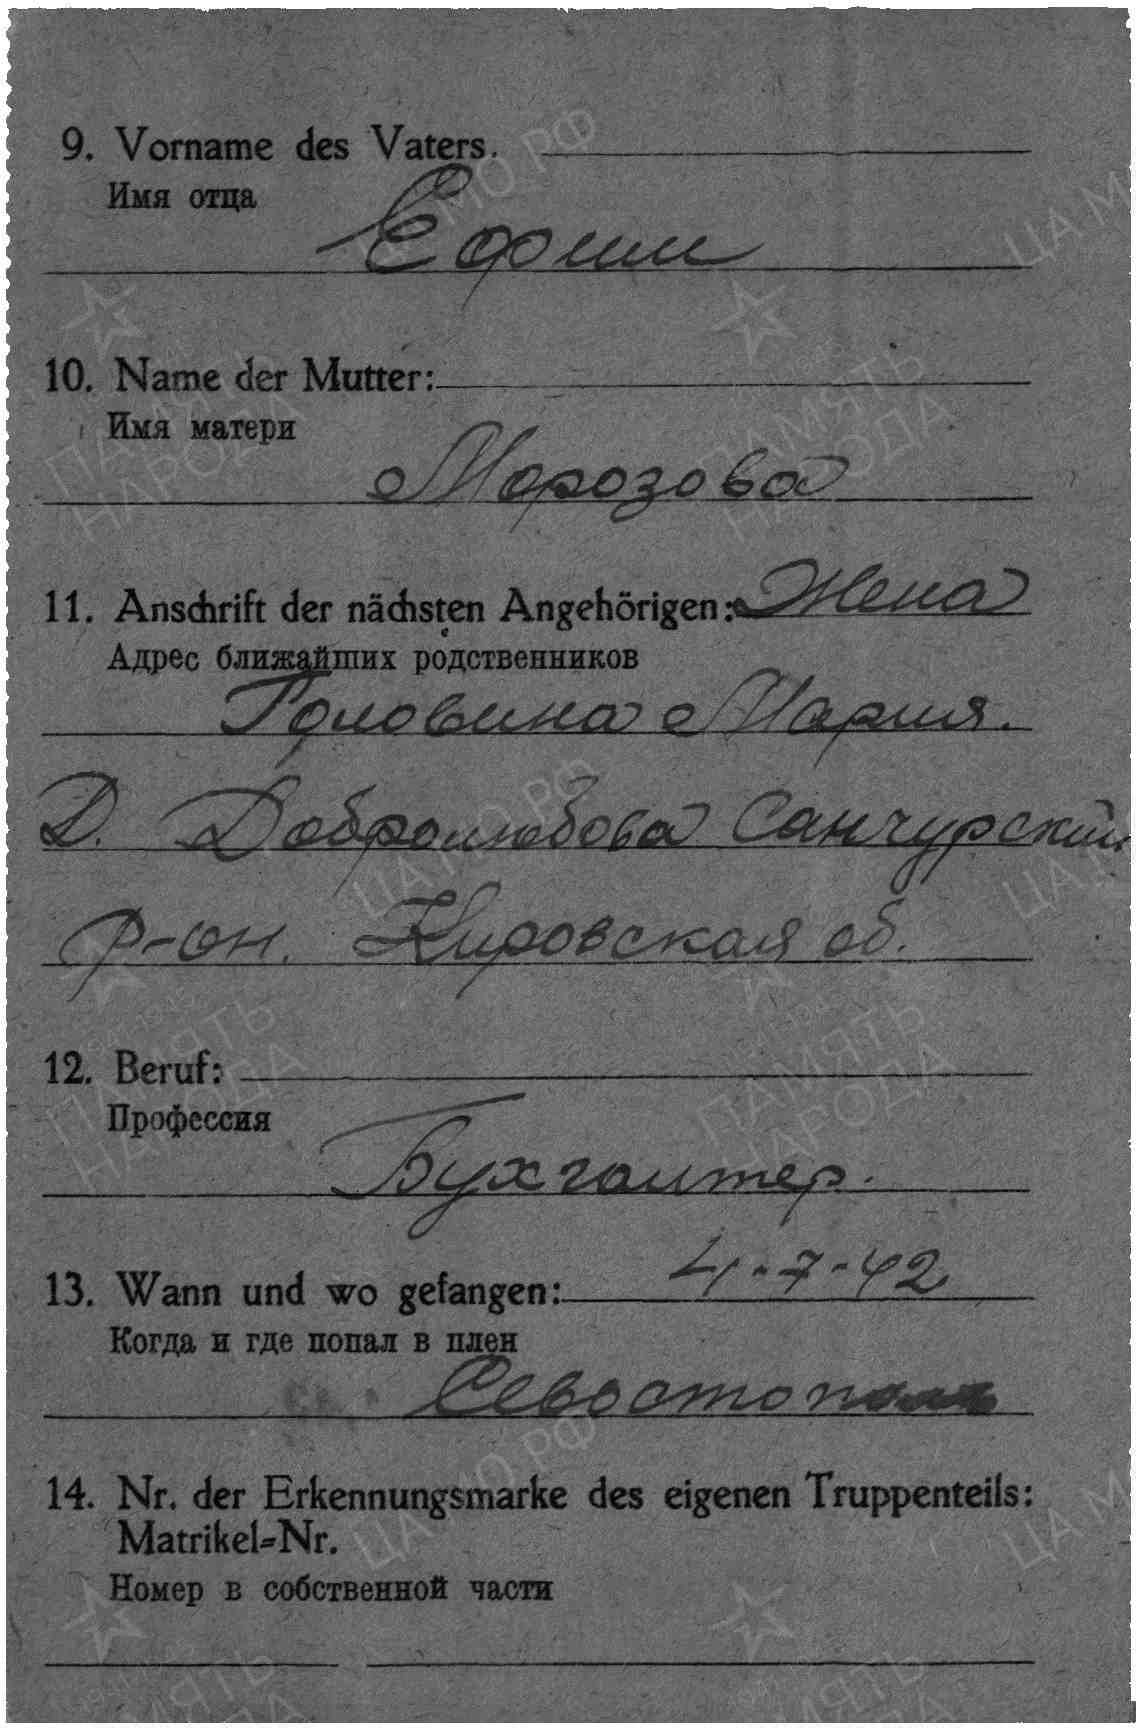 9. Vorname des Vaters.
Имя отца
Ефим
10. Name der Mutter:
Имя матери
Морозова
11. Anschrift der nächsten Angehörigen: Жена
Адрес ближайших родственников
Головина Мария.
Д. Добролюбова Санчурский
р-он. Кировская об.
12. Beruf:
Профессия
Бухгалтер.
13. Wann und wo gefangen: 4-7-42
Когда и где попал в плен
Севостополь
14. Nr. der Erkennungsmarke des eigenen Truppenteils:
Matrikel=Nr.
Номер в собственной части
ЦАМО.РФ
ПАМЯТЬ
НАРОДА
1941-1945